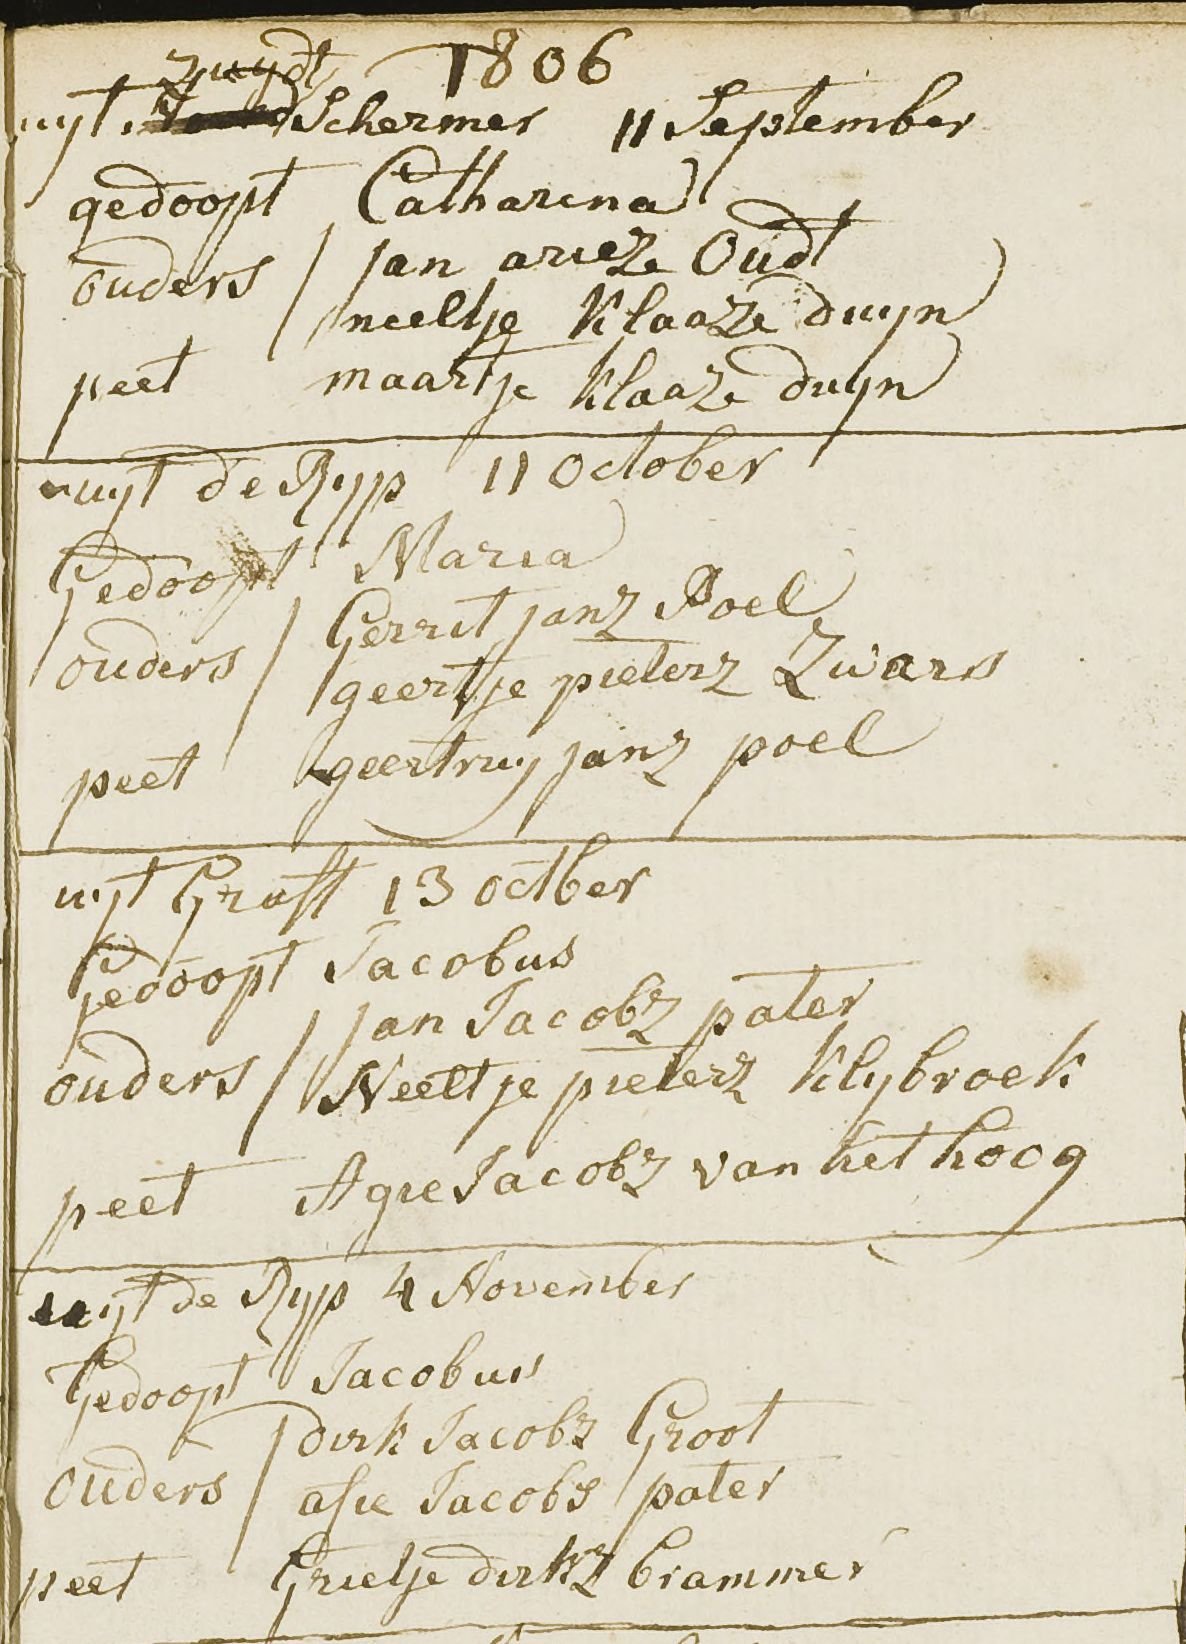 1806
uyt Zuydt Schermer 11 September
gedoopt Catharina
ouders jan ariez Oudt
neeltje Klaaze duyn
peet maartje Klaaze duyn
uyt de Ryp 11 October
Gedoopt Maria
ouders Gerrit janz Poel
geertje pieterz Zwars
peet geertruy janz poel
uyt Graft 13 octber
Gedoopt Jacobus
ouders jan Jacobz pater
Neeltje pieterz Klybroek
peet Agie Jacobz van het hoog
uyt de Ryp 4 November
Gedoopt Jacobus
ouders dirk Jacobz Groot
afie Jacobs pater
peet Grietje dirkz brammer